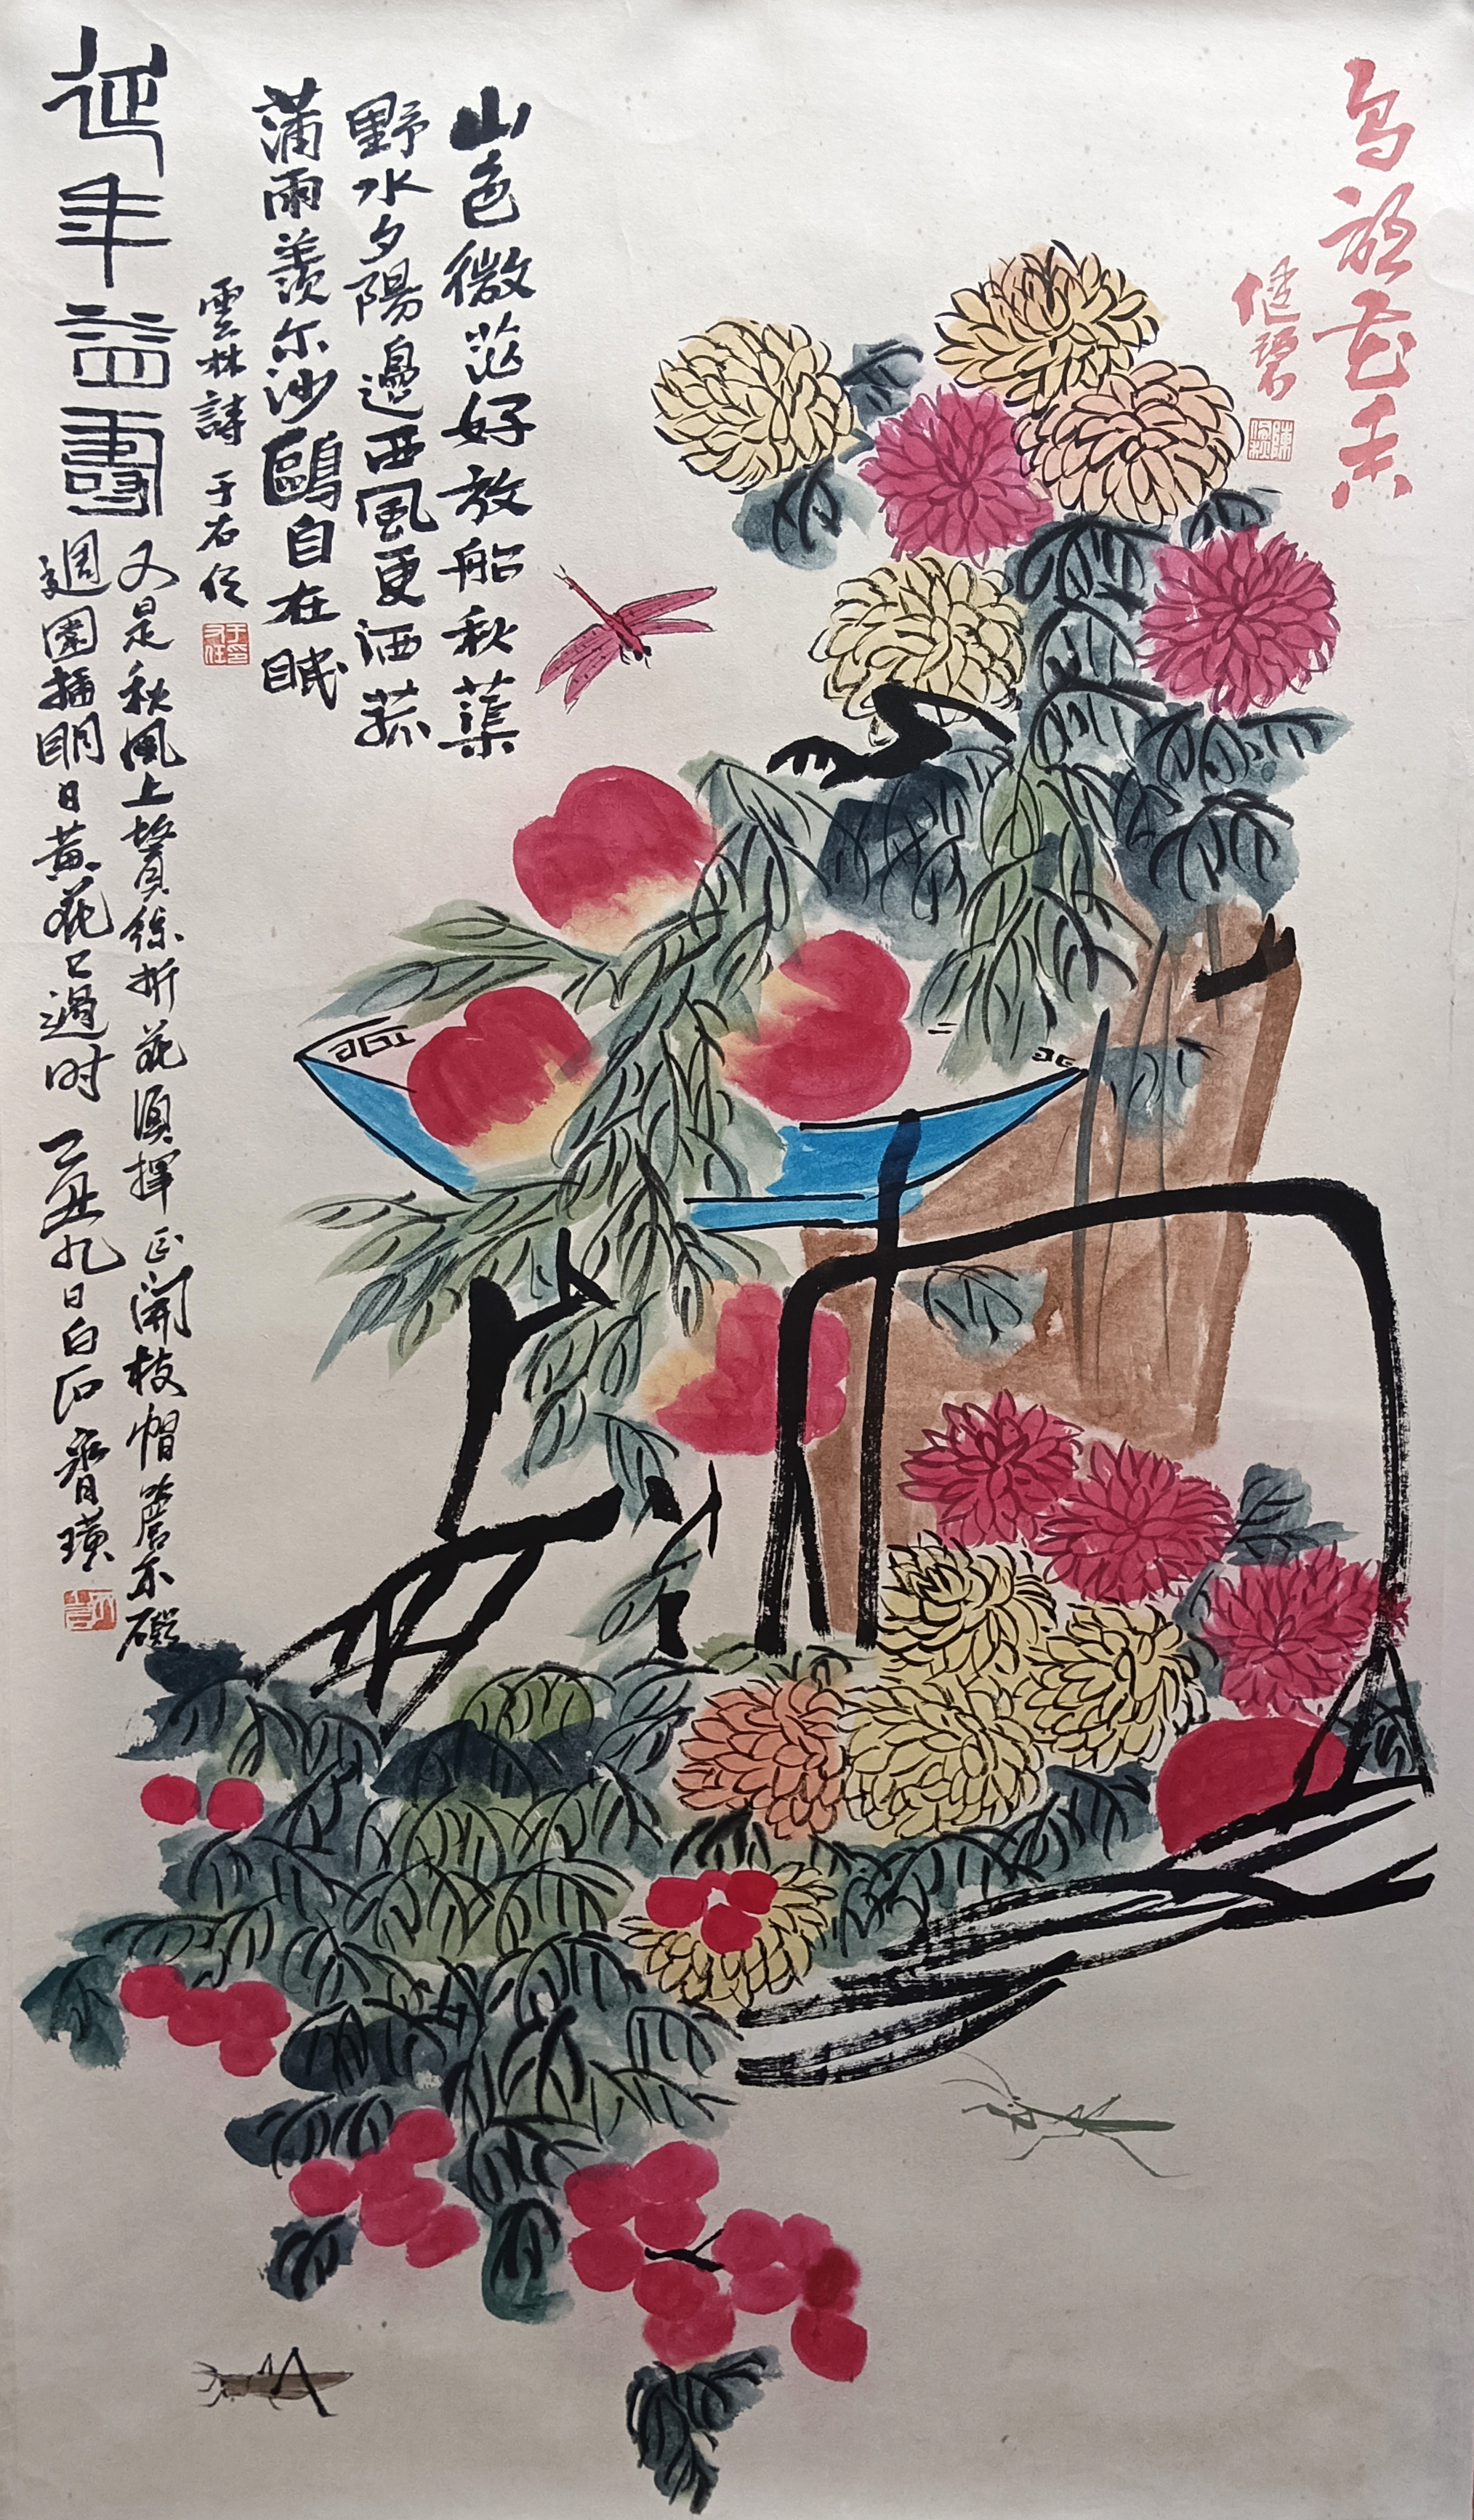 鸟语花香
陳
山色微茫好放船秋蕖
野水夕陽邊西風更洒菰
蒲雨羡尔沙鷗自在眠
雲林詩 于右任
于右任印
延年益壽
又是秋風上鬢絲折花須揮正開枝帽簷亦礙
週園插明日黄花已過时 乙丑九日白石齊璜